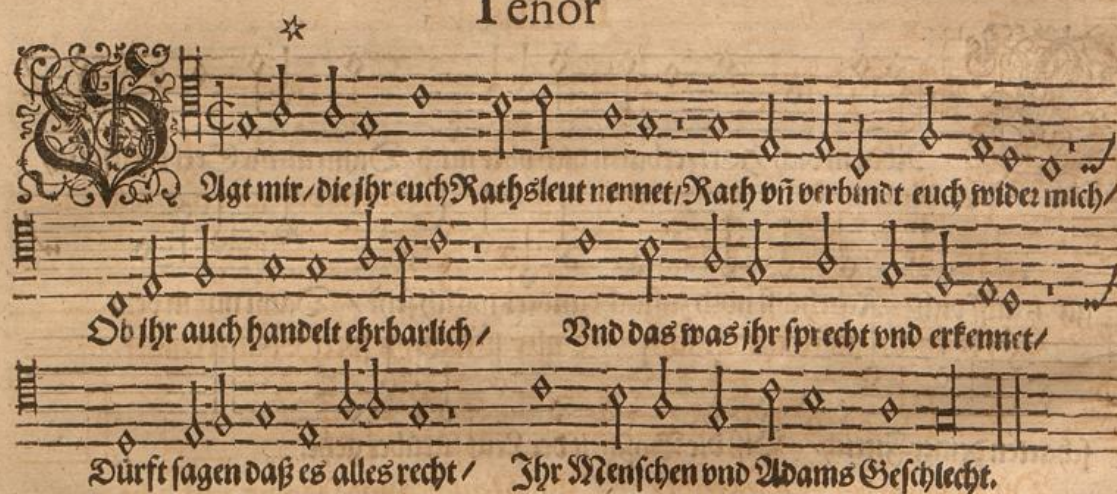 Tenor
SAgt mir/ die jhr euch Rathsleut nennet/ Rath vñ verbindt euch wider mich/
Ob jhr auch handelt ehrbarlich/ Vnd das was jhr sprecht vnd erkennet/
Dürft sagen daß es alles recht/ Ihr Menschen vnd Adams Geschlecht.